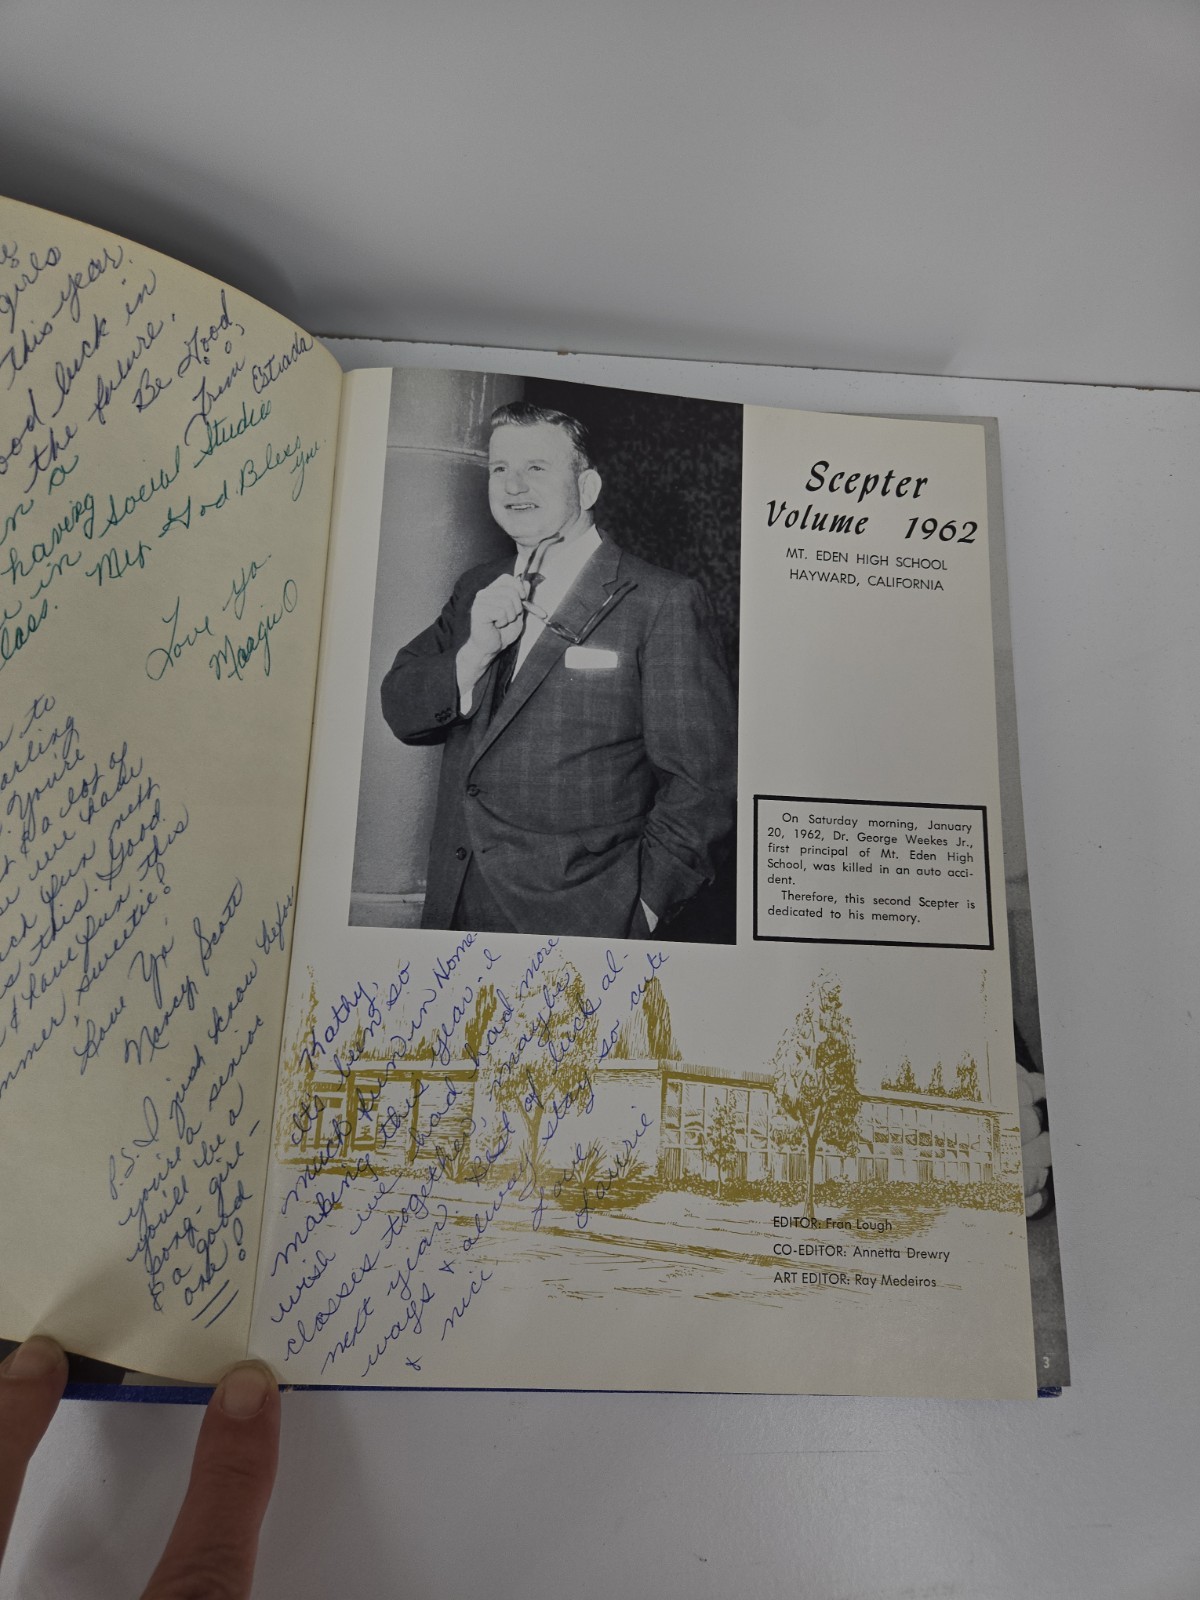 girls
this year.
good luck in
the future.
Be Good,
Trini
Estrada
having
Social Studies
in
class. May God Bless
You.
Love Ya
Margie O
to
darling
You're
a lot of
we have
fun next
this. Good
& have fun this
summer, sweetie!
Love Ya,
Nancy Scott
P.S. I just know before
you're a senior
you'll be a
song-girl-
& a good
one!
Scepter
Volume 1962
MT. EDEN HIGH SCHOOL
HAYWARD, CALIFORNIA
On Saturday morning, January
20, 1962, Dr. George Weekes Jr.,
first principal of Mt. Eden High
School, was killed in an auto acci-
dent.
Therefore, this second Scepter is
dedicated to his memory.
Kathy,
Its been so
much fun in Home-
making this year. I
wish we had had more
classes together, maybe
next year. Best of luck al-
ways & alway stay so cute
& nice
Love,
Laurie
EDITOR: Fran Lough
CO-EDITOR: Annetta Drewry
ART EDITOR: Ray Medeiros
3